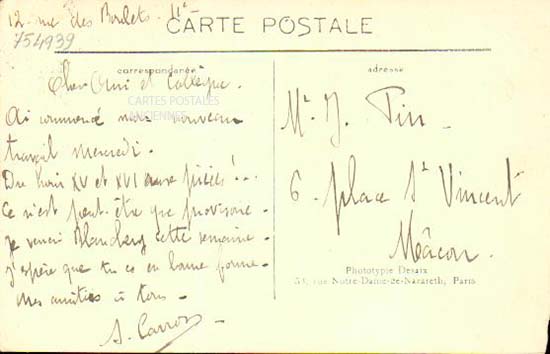 12 rue des Boulets. 11e
754939
CARTE POSTALE
correspondance
adresse
Cher Ami et Collègue.
CARTES POSTALES
ANCIENNES
Ai commencé mon nouveau
travail mercredi.
Du Louis XV et XVI
Ce n'est peut-être que provisoire.
Je verrai Blancherg cette semaine.
J'espère que tu es en bonne forme.
Mes amitiés à tous.
A. Carron
Mr. J. Pin.
6. place St Vincent
Mâcon.
Phototypie Desaix
rue Notre-Dame-de-Nazareth, Paris